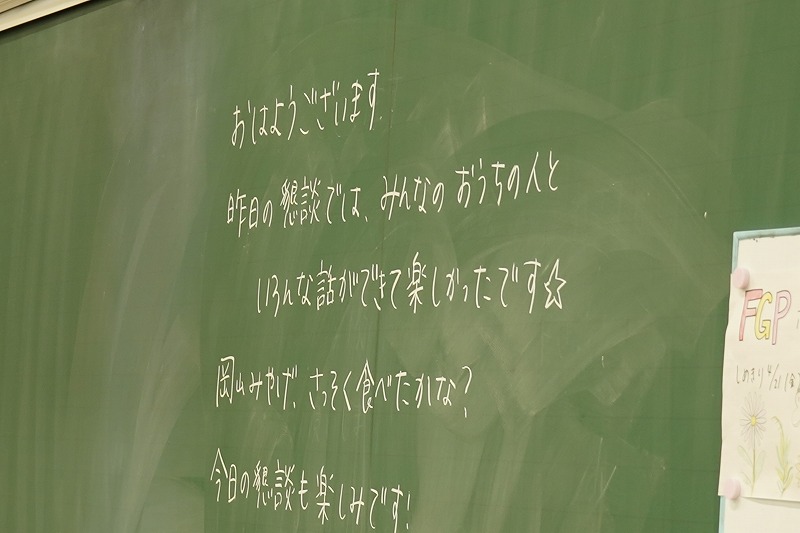 おはようございます.
昨日の懇談では、みんなの おうちの人と
いろんな話ができて楽しかったです☆
岡山みやげ、さっそく食べたかな?
今日の懇談も楽しみです!
FGP
しめきり4/21(金)